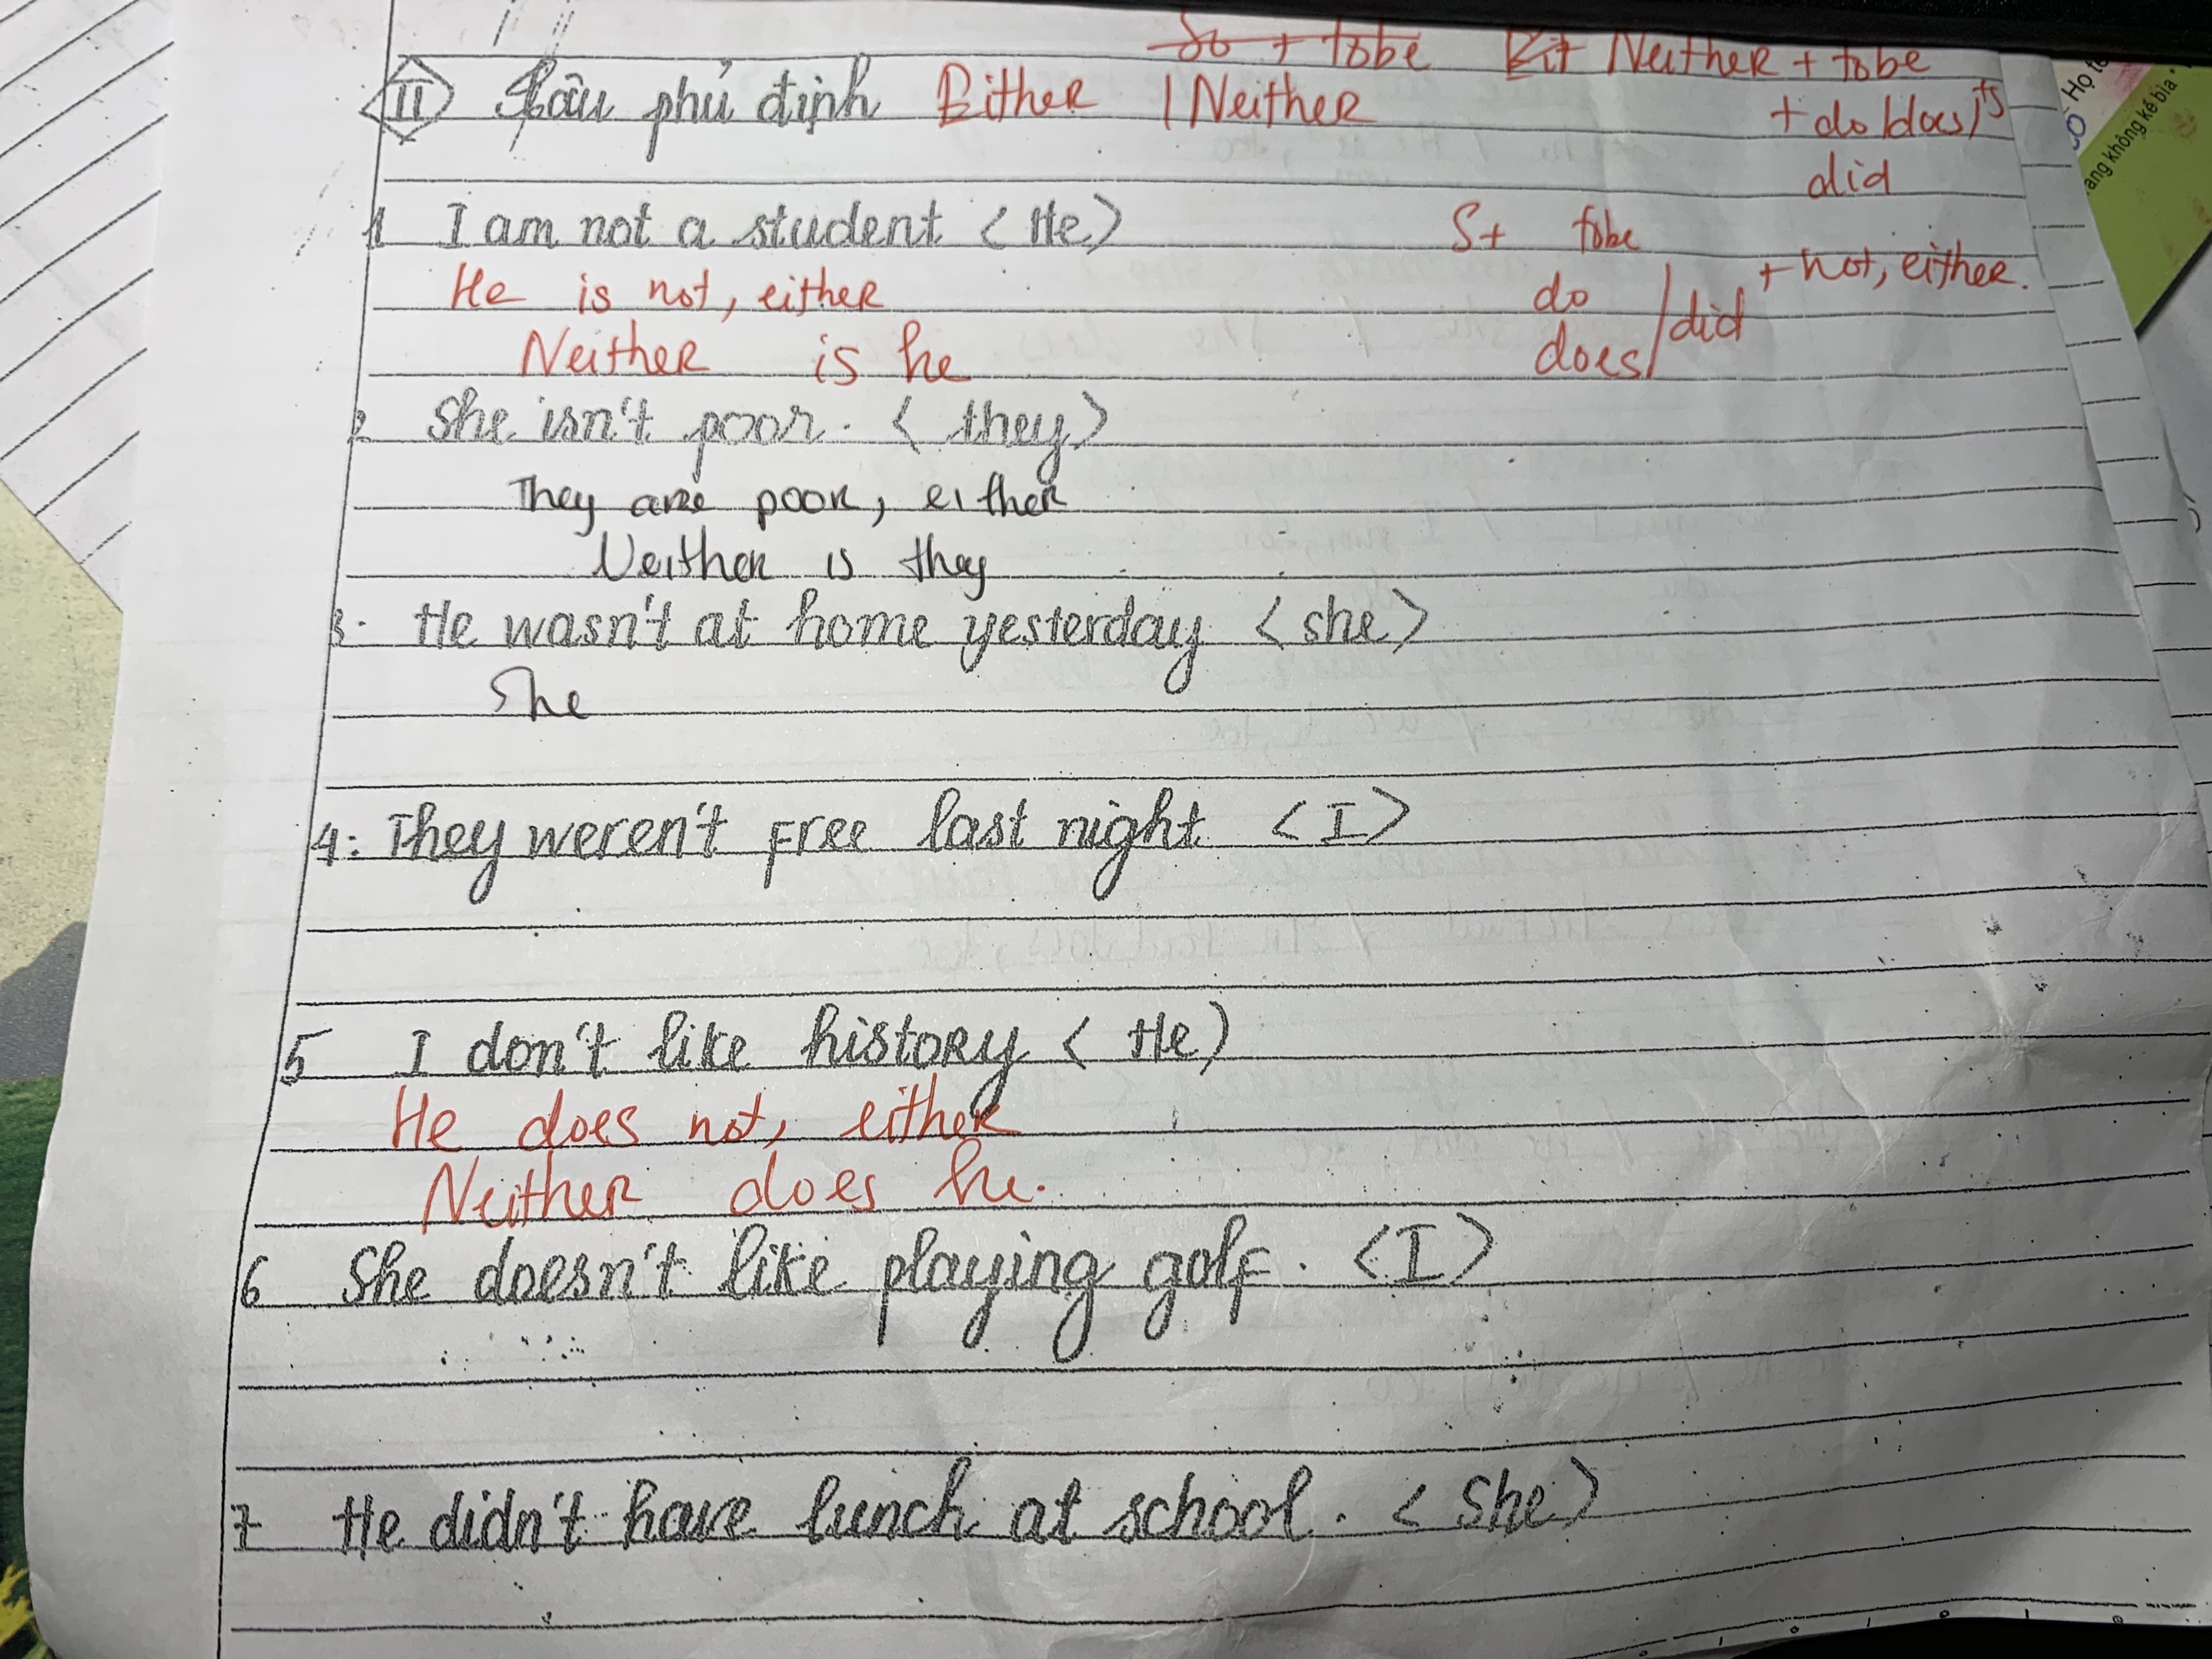 So + tobe Eit Neither + tobe
II Câu phủ định Either / Neither + do/does, + S
did
1 I am not a student < He >
S + tobe
He is not, either
do / did + not, either.
Neither is he
does
2 She isn't poor. < they >
They are poor, either
Neither is they
3. He wasn't at home yesterday < she >
She
4: They weren't free last night < I >
5 I don't like history < He )
He does not, either
Neither does he.
6 She doesn't like playing golf. < I >
7 He didn't have lunch at school. < She >
Họ t
ang không kẻ bìa